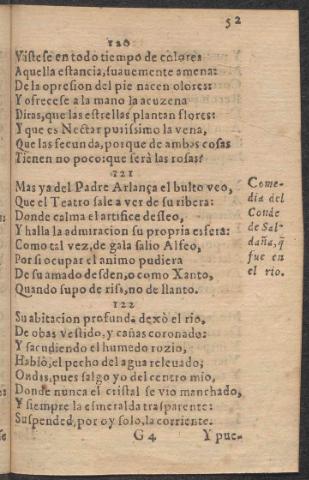 52
120
Vistese en todo tiempo de colores
Aquella estancia, suauemente amena:
De la opresion del pie nacen olores:
Y ofrecese a la mano la açuzena
Diras, que las estrellas plantan flores:
Y que es Nectar purissimo la vena,
Que las fecunda, porque de ambas cosas
Tienen no poco: que serà las rosas?
121
Mas ya del Padre Arlança el bulto veo,
Que el Teatro sale a ver de su ribera:
Donde calma el artifice desseo,
Y halla la admiracion su propria esfera:
Como tal vez, de gala salio Alfeo,
Por si ocupar el animo pudiera
De su amado desden, o como Xanto,
Quando supo de risa, no de llanto.
Come-
dia del
Conde
de Sal-
daña, q̃
fue en
el rio.
122
Su abitacion profunda dexò el rio,
De obas vestido, y cañas coronado:
Y sacudiendo el humedo rozio,
Hablò, el pecho del agua releuado;
Ondas, pues salgo yo del centro mio,
Donde nunca el cristal se vio manchado,
Y siempre la esmeralda trasparente:
Suspended, por oy solo, la corriente.
G 4 Y pue-